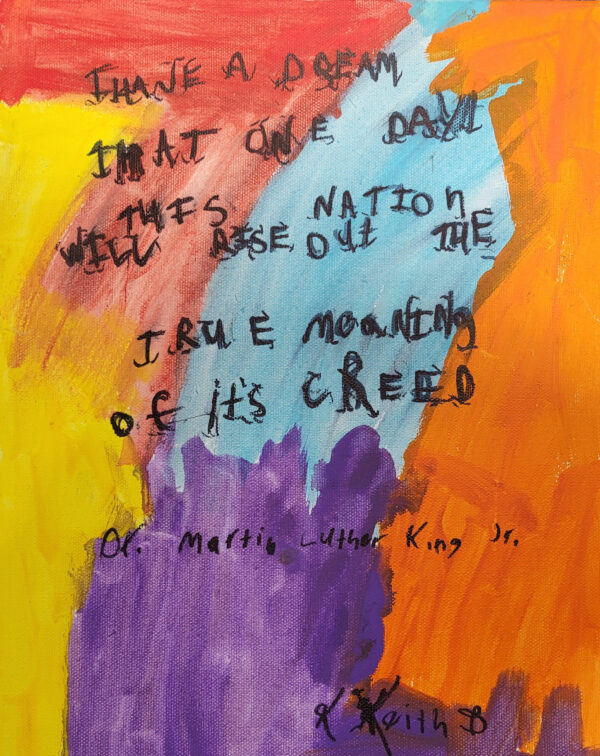 I HAVE A DREAM
THAT ONE DAY
THIS NATION
WILL RISE OUT THE
TRUE MEANING
OF it's CREED
Dr. Martin Luther King Jr.
Keith B